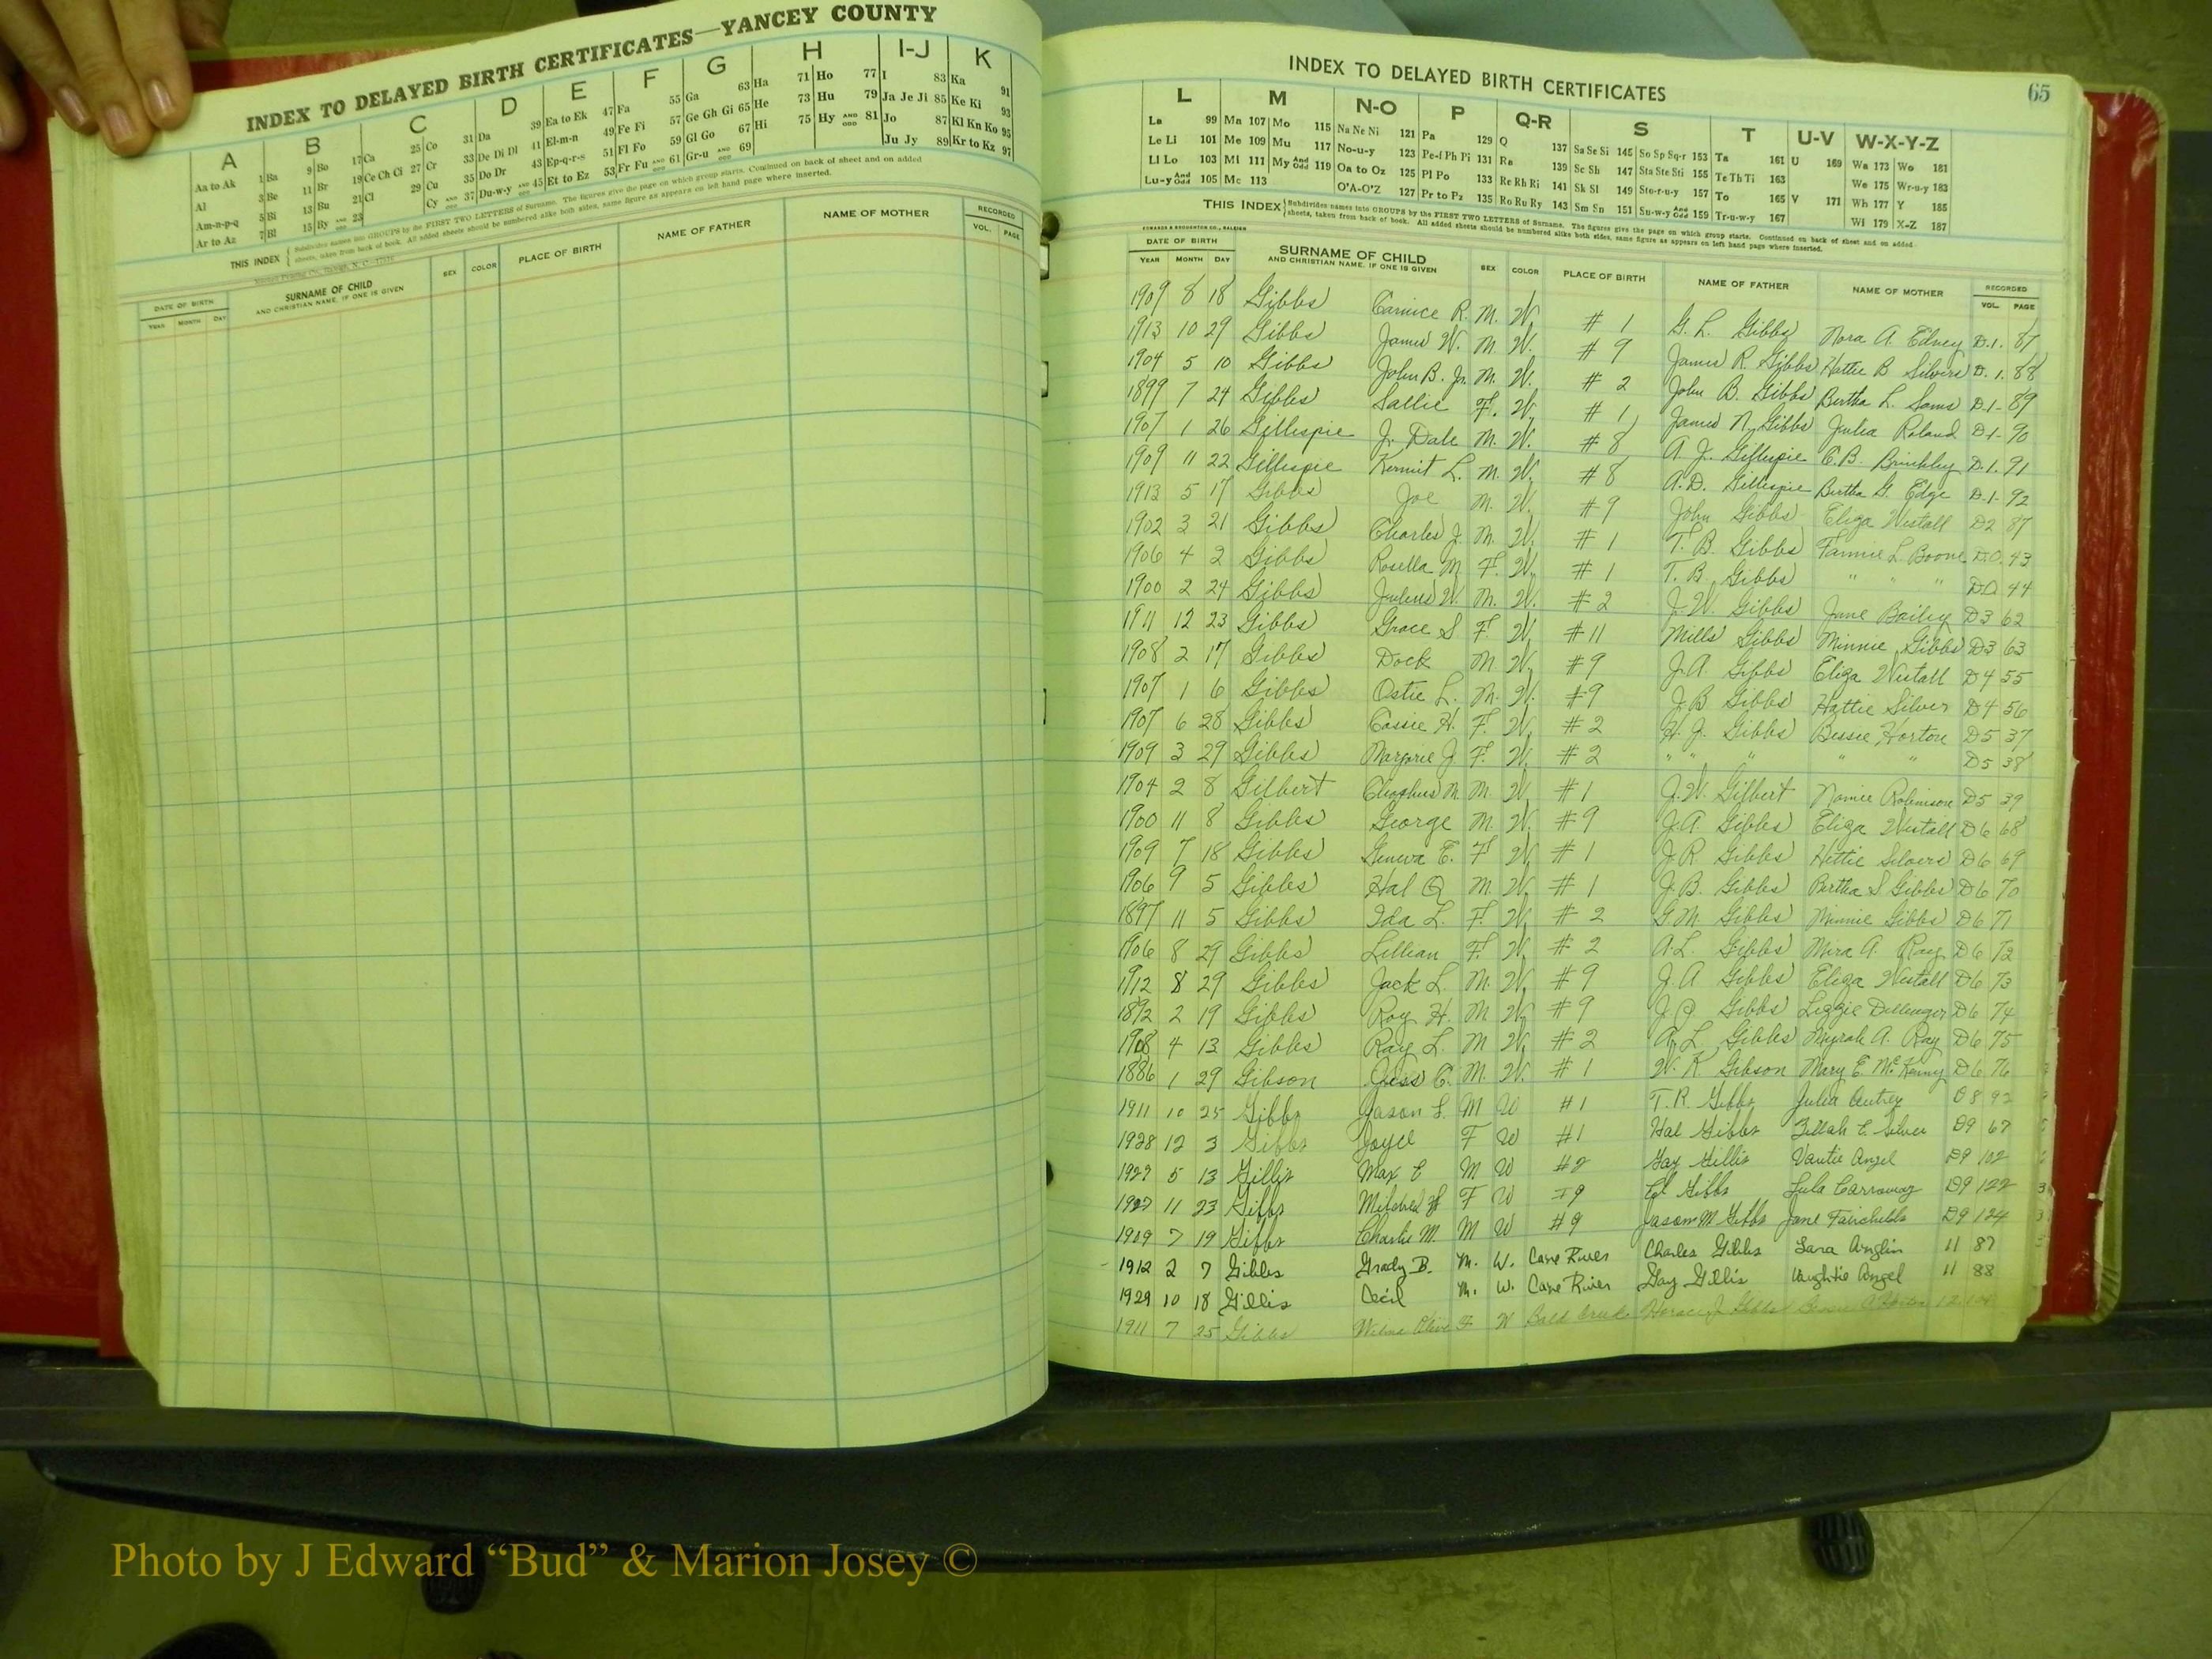 INDEX TO DELAYED BIRTH CERTIFICATES—YANCEY COUNTY
A B C D E F G H I-J K
Aa to Ak 1 Ba 9 Bo 17 Ca 25 Co 31 Da 39 Ea to Ek 47 Fa 55 Ga 63 Ha 71 Ho 77 I 83 Ka 91
Al 3 Be 11 Br 19 Ce Ch Ci 27 Cr 33 De Di Dl 41 El-m-n 49 Fe Fi 57 Ge Gh Gi 65 He 73 Hu 79 Ja Je Ji 85 Ke Ki 93
Am-n-p-q 5 Bi 13 Bu 21 Cl 29 Cu 35 Do Dr 43 Ep-q-r-s 51 Fl Fo 59 Gl Go 67 Hi 75 Hy AND ODD 81 Jo 87 Kl Kn Ko 95
Ar to Az 7 Bl 15 By AND ODD 23 Cy AND ODD 37 Du-w-y AND ODD 45 Et to Ez 53 Fr Fu AND ODD 61 Gr-u AND ODD 69 Ju Jy 89 Kr to Kz 97
THIS INDEX { Subdivides names into GROUPS by the FIRST TWO LETTERS of Surname. The figures give the page on which group starts. Continued on back of sheet and on added
sheets, taken from back of book. All added sheets should be numbered alike both sides, same figure as appears on left hand page where inserted.
DATE OF BIRTH SURNAME OF CHILD SEX COLOR PLACE OF BIRTH NAME OF FATHER NAME OF MOTHER RECORDED
YEAR MONTH DAY AND CHRISTIAN NAME, IF ONE IS GIVEN VOL. PAGE
INDEX TO DELAYED BIRTH CERTIFICATES 65
L M N-O P Q-R S T U-V W-X-Y-Z
La 99 Ma 107 Mo 115 Na Ne Ni 121 Pa 129 Q 137 Sa Se Si 145 So Sp Sq-r 153 Ta 161 U 169 Wa 173 Wo 181
Le Li 101 Me 109 Mu 117 No-u-y 123 Pe-f Ph Pi 131 Ra 139 Sc Sh 147 Sta Ste Sti 155 Te Th Ti 163 We 175 Wr-u-y 183
Ll Lo 103 Mi 111 My And Odd 119 Oa to Oz 125 Pl Po 133 Re Rh Ri 141 Sk Sl 149 Sto-r-u-y 157 To 165 V 171 Wh 177 Y 185
Lu-y And Odd 105 Mc 113 O'A-O'Z 127 Pr to Pz 135 Ro Ru Ry 143 Sm Sn 151 Su-w-y And Odd 159 Tr-u-w-y 167 Wi 179 X-Z 187
THIS INDEX { Subdivides names into GROUPS by the FIRST TWO LETTERS of Surname. The figures give the page on which group starts. Continued on back of sheet and on added
sheets, taken from back of book. All added sheets should be numbered alike both sides, same figure as appears on left hand page where inserted.
EDWARDS & BROUGHTON CO., RALEIGH
DATE OF BIRTH SURNAME OF CHILD SEX COLOR PLACE OF BIRTH NAME OF FATHER NAME OF MOTHER RECORDED
YEAR MONTH DAY AND CHRISTIAN NAME, IF ONE IS GIVEN VOL. PAGE
1909 8 18 Gibbs Carnice R. M. W. # 1 G. L. Gibbs Nora A. Edney D.1. 87
1913 10 29 Gibbs James W. M. W. # 9 James R. Gibbs Hattie B Silvers D. 1. 88
1904 5 10 Gibbs John B. Jr. M. W. # 2 John B. Gibbs Bertha L. Sams D.1- 89
1899 7 24 Gibbs Sallie F. W. # 1 James N. Gibbs Julia Roland D.1- 90
1907 1 26 Gillespie J. Dale M. W. # 8 A. J. Gillespie C.B. Brinkley D.1. 91
1909 11 22 Gillespie Kermit L. M. W. # 8 A.D. Gillespie Bertha G. Edge D.1- 92
1913 5 17 Gibbs Joe M. W. # 9 John Gibbs Eliza Westall D2 87
1902 3 21 Gibbs Charles J. M. W. # 1 T. B. Gibbs Fannie L. Boone D.O. 43
1906 4 2 Gibbs Rosella M F. W. # 1 T. B. Gibbs " " " D.O. 44
1900 2 24 Gibbs W. M. W. # 2 J. W. Gibbs Jane Bailey D3 62
1911 12 23 Gibbs Grace S F. W. # 11 Mills Gibbs Minnie Gibbs D3 63
1908 2 17 Gibbs Dock M W. # 9 J.A. Gibbs Eliza Westall D4 55
1907 1 6 Gibbs Ostie L. M. W. # 9 J.B. Gibbs Hattie Silver D4 56
1907 6 28 Gibbs Cassie H. F. W. # 2 H. J. Gibbs Bessie Horton D5 37
1909 3 29 Gibbs Marjorie J. F. W. # 2 " " " " " D5 38
1904 2 8 Gilbert Cleophus M. M. W # 1 J.W. Gilbert Namie Robinson D5 39
1900 11 8 Gibbs George M. W. # 9 J.A. Gibbs Eliza Westall D6 68
1909 7 18 Gibbs Geneva E. F W. # 1 J.R. Gibbs Hettie Silvers D6 69
1906 9 5 Gibbs Hal Q M. W. # 1 J.B. Gibbs Bertha S Gibbs D6 70
1897 11 5 Gibbs Ida L. F. W. # 2 G.M. Gibbs Minnie Gibbs D6 71
1906 8 29 Gibbs Lillian F. W. # 2 A.L. Gibbs Mira A. Ray D6 72
1912 8 29 Gibbs Jack L. M. W. # 9 J.A Gibbs Eliza Westall D6 73
1892 2 19 Gibbs Roy H. M W. # 9 J.Q Gibbs Lizzie Dellinger D6 74
1908 4 13 Gibbs Ray L. M W. # 2 A.L. Gibbs Myrah A. Ray D6 75
1886 1 29 Gibson Jess C. M. W. # 1 W. K. Gibson Mary E. McKenny D6 76
1911 10 25 Gibbs Jason L. M W #1 T. R. Gibbs Julia Autrey D8 92
1928 12 3 Gibbs Joyce F W #1 Hal Gibbs Zillah E. Silver D9 67
1927 5 13 Gillis Max E M W #2 Gay Gillis Vautie Angel D9 102
1927 11 23 Gibbs Mildred F W #9 Ed Gibbs Lula Carroway D9 122
1909 7 19 Gibbs Charlie M. M W #9 Jason M Gibbs Jane Fairchilds D9 124
1912 2 7 Gibbs Grady B. M. W. Cane River Charles Gibbs Sara Anglin 11 87
1929 10 18 Gillis Cecil M. W. Cane River Gay Gillis Vaughtie Angel 11 88
1911 7 25 Gibbs Wilma Olive F W Bald Creek Horace J Gibbs Bessie 12
Photo by J Edward “Bud” & Marion Josey ©